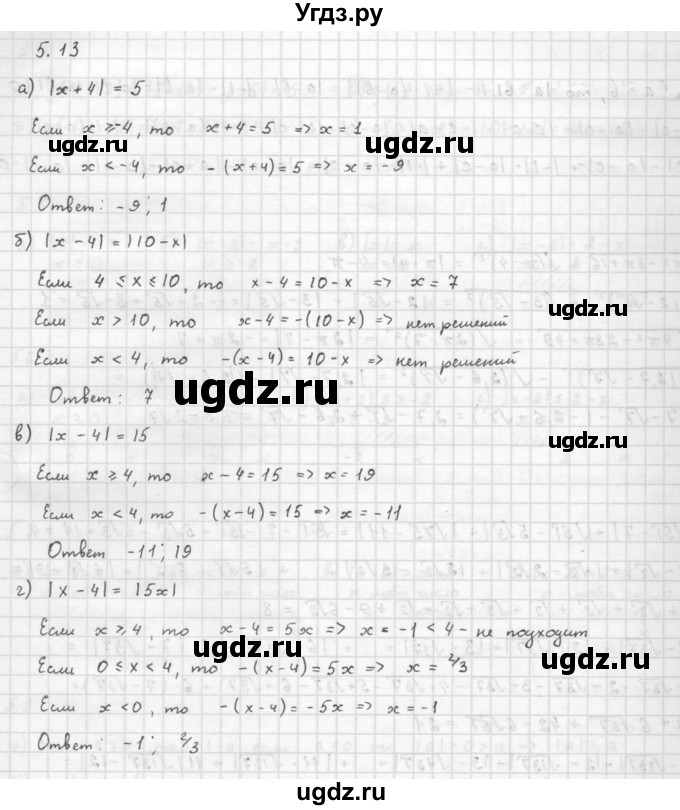 Угдз.ру
5.13
а) |x+4| = 5
Если x ⩾ -4, то x+4=5 => x=1
Если x < -4, то -(x+4)=5 => x=-9
ugdz.ru ugdz.ru
Ответ: -9; 1
б) |x-4| = |10-x|
Если 4 ≤ x ≤ 10, то x-4=10-x => x=7
Если x > 10, то x-4=-(10-x) => нет решений
ugdz.ru
Если x < 4, то -(x-4)=10-x => нет решений
Ответ: 7
ugdz.ru
в) |x-4|=15
ugdz.ru
Если x ⩾ 4, то x-4=15 => x=19
Если x < 4, то -(x-4)=15 => x=-11
Ответ -11; 19
г) |x-4|=|5x|
Если x ⩾ 4, то x-4=5x => x=-1<4 - не подходит
ugdz.ru ugdz.ru
Если 0 ≤ x < 4, то -(x-4)=5x => x=2/3
Если x<0, то -(x-4)=-5x => x=-1
Ответ: -1; 2/3